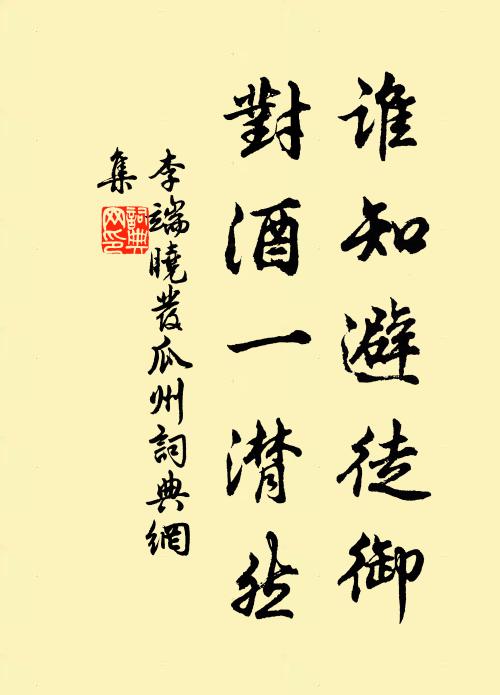 谁知避徒御
對酒一潸然
李端曉發瓜州詞典網
集
詞典网印